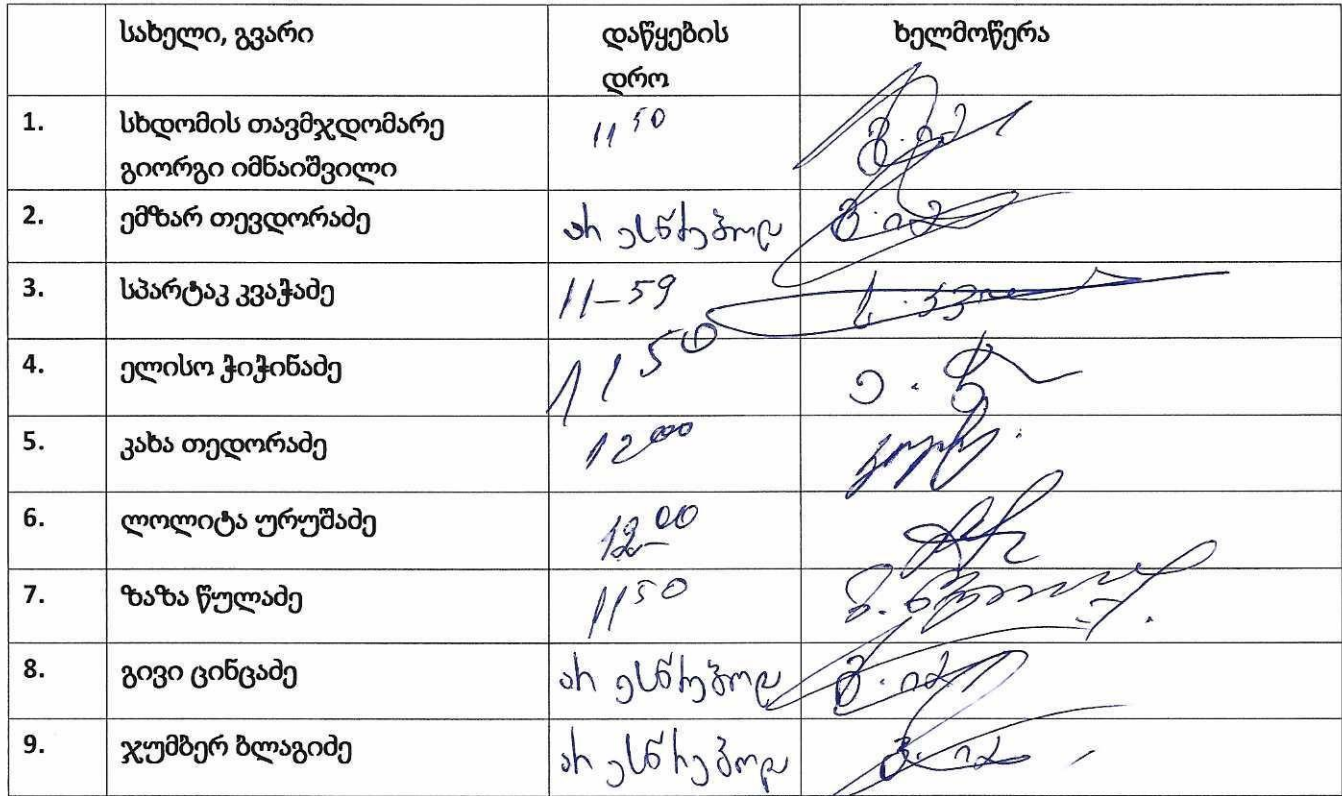 სახელი, გვარი დაწყების ხელმოწერა
დრო
1. სხდომის თავმჯდომარე 11 50
გიორგი იმნაიშვილი
2. ემზარ თევდორაძე არ ესწრებოდა
3. სპარტაკ კვაჭაძე 11-59
4. ელისო ჭიჭინაძე 11 50
5. კახა თედორაძე 12 00
6. ლოლიტა ურუშაძე 12 00
7. ზაზა წულაძე 11 50
8. გივი ცინცაძე არ ესწრებოდა
9. ჯუმბერ ბლაგიძე არ ესწრებოდა